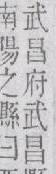 武昌府武昌縣
南陽之縣曰